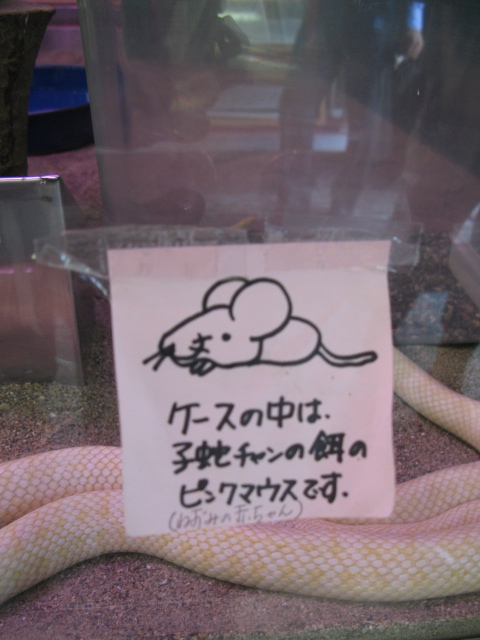 ケースの中は、
子蛇チャンの餌の
ピンクマウスです.
(ねずみの赤ちゃん)